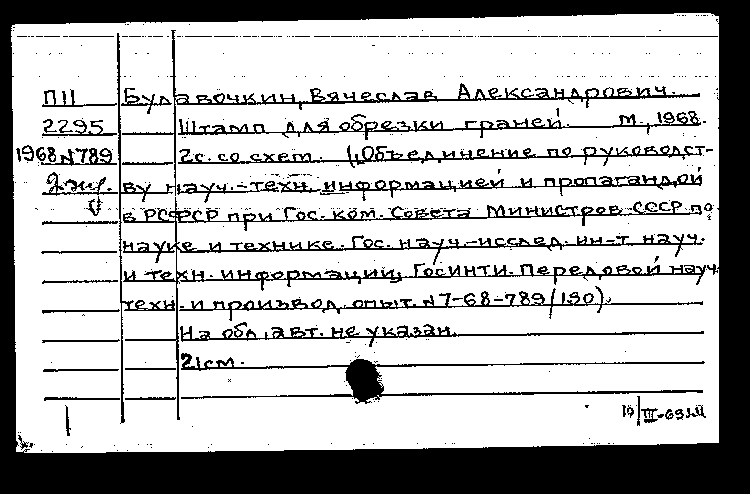 П11 Булавочкин, Вячеслав Александрович.
2295 Штамп для обрезки граней. М., 1968.
1968 N789 2с. со схем. („Объединение по руководст-
2 экз. ву науч.-техн. информацией и пропагандой
в РСФСР при Гос. ком. Совета Министров СССР по
науке и технике. Гос. науч.-исслед. ин-т науч.
и техн. информации, ГосИНТИ. Передовой науч.
техн. и производ. опыт. N7-68-789/130).
На обл. авт. не указан.
21см.
19/III-69